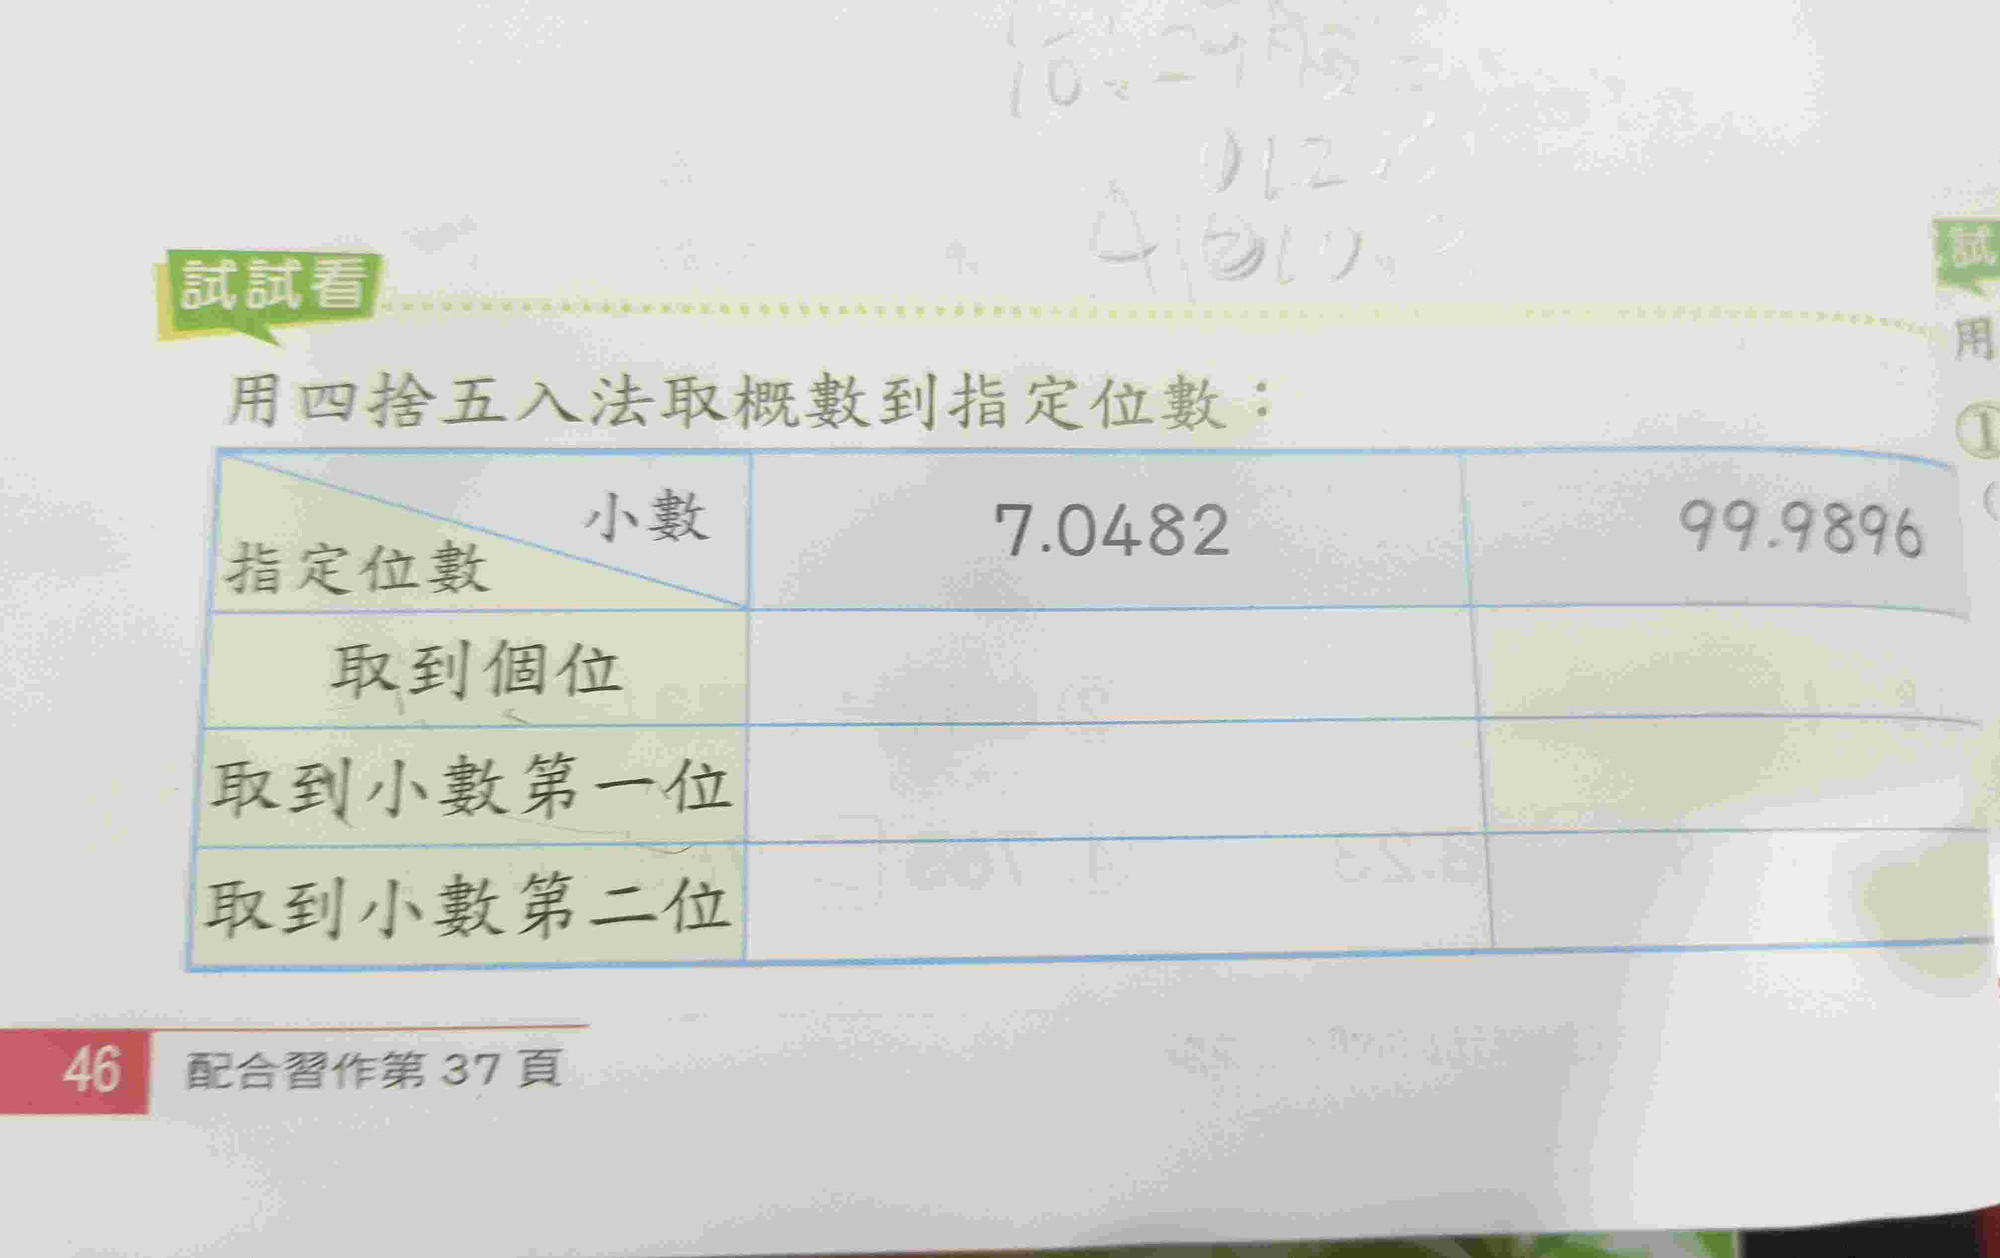 試試看
用四捨五入法取概數到指定位數：
小數
指定位數
7.0482
99.9896
取到個位
取到小數第一位
取到小數第二位
46
配合習作第 37 頁
試
用
①
(